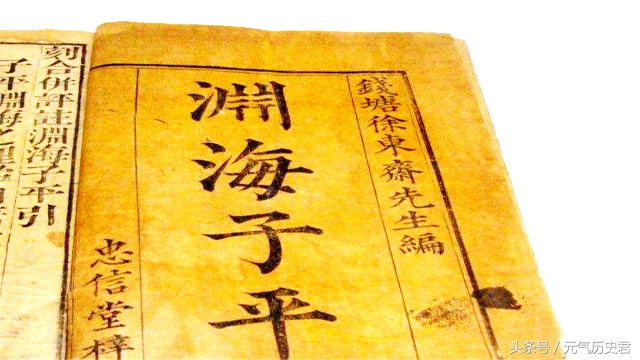 錢塘徐東齋先生編
淵海子平
忠信堂梓
刻合併評註淵海子平引
子平淵海之理
头条号 / 元气历史君